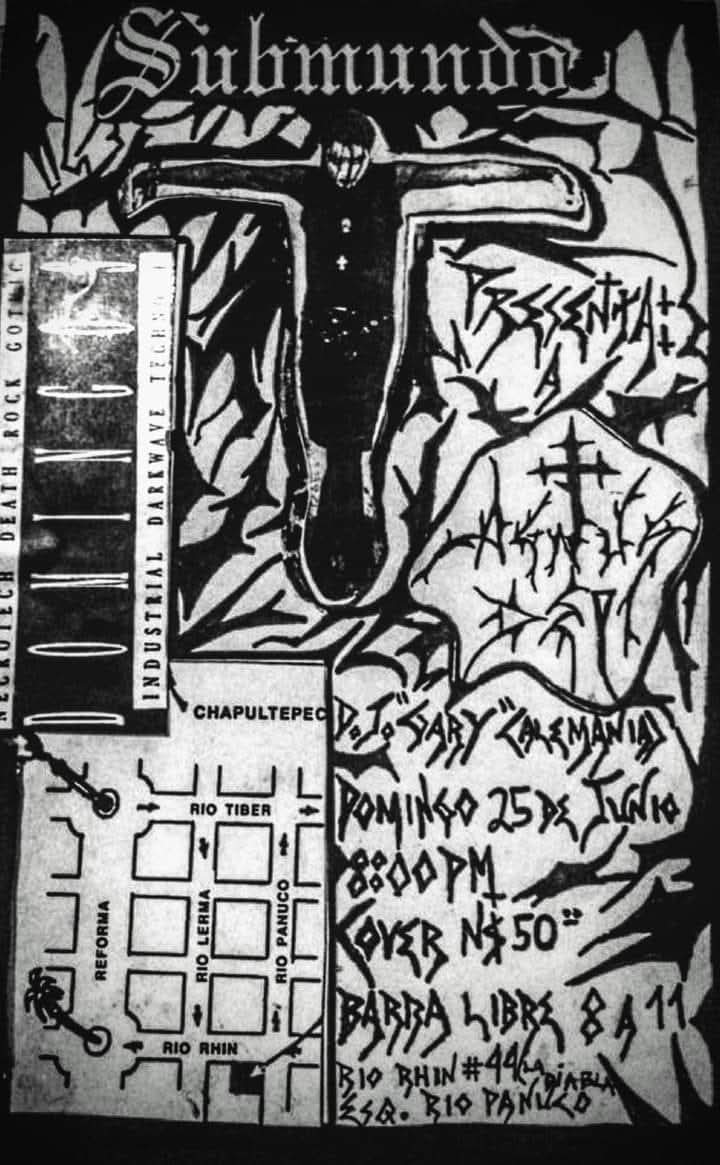 Submundo
PRESENTA:
A
NECROTECH DEATH ROCK GOTHIC
DOMINGOS
INDUSTRIAL DARKWAVE TECHNO
D.J. "GARY" (ALEMANIA)
DOMINGO 25 DE JUNIO
8:00 PM
COVER N$ 50°°
BARRA LIBRE 8 A 11
RIO RHIN #44 (LA DIABLA)
ESQ. RIO PANUCO
CHAPULTEPEC
RIO TIBER
REFORMA
RIO LERMA
RIO PANUCO
RIO RHIN